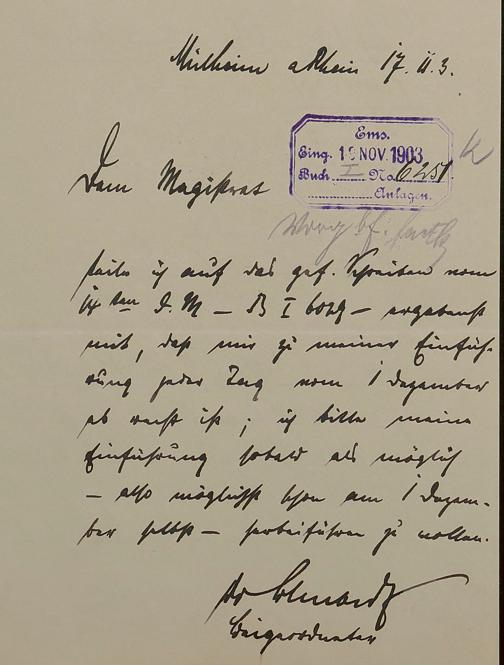 Mülheim a Rhein 17. 11. 3.
Ems.
Eing. 19 NOV. 1903
Buch. I No. 6251.
Anlagen.
Dem Magistrat
teile ich auf das gef. Schreiben vom
14 ten d. M – B I 6029 – ergebenst
mit, daß mir zu meiner Einfüh-
rung jeder Tag vom 1 Dezember
ab recht ist; ich bitte meine
Einführung sobald als möglich
– also möglichst schon am 1 Dezem-
ber selbst – herbeiführen zu wollen.
Dr
Beigeordneter